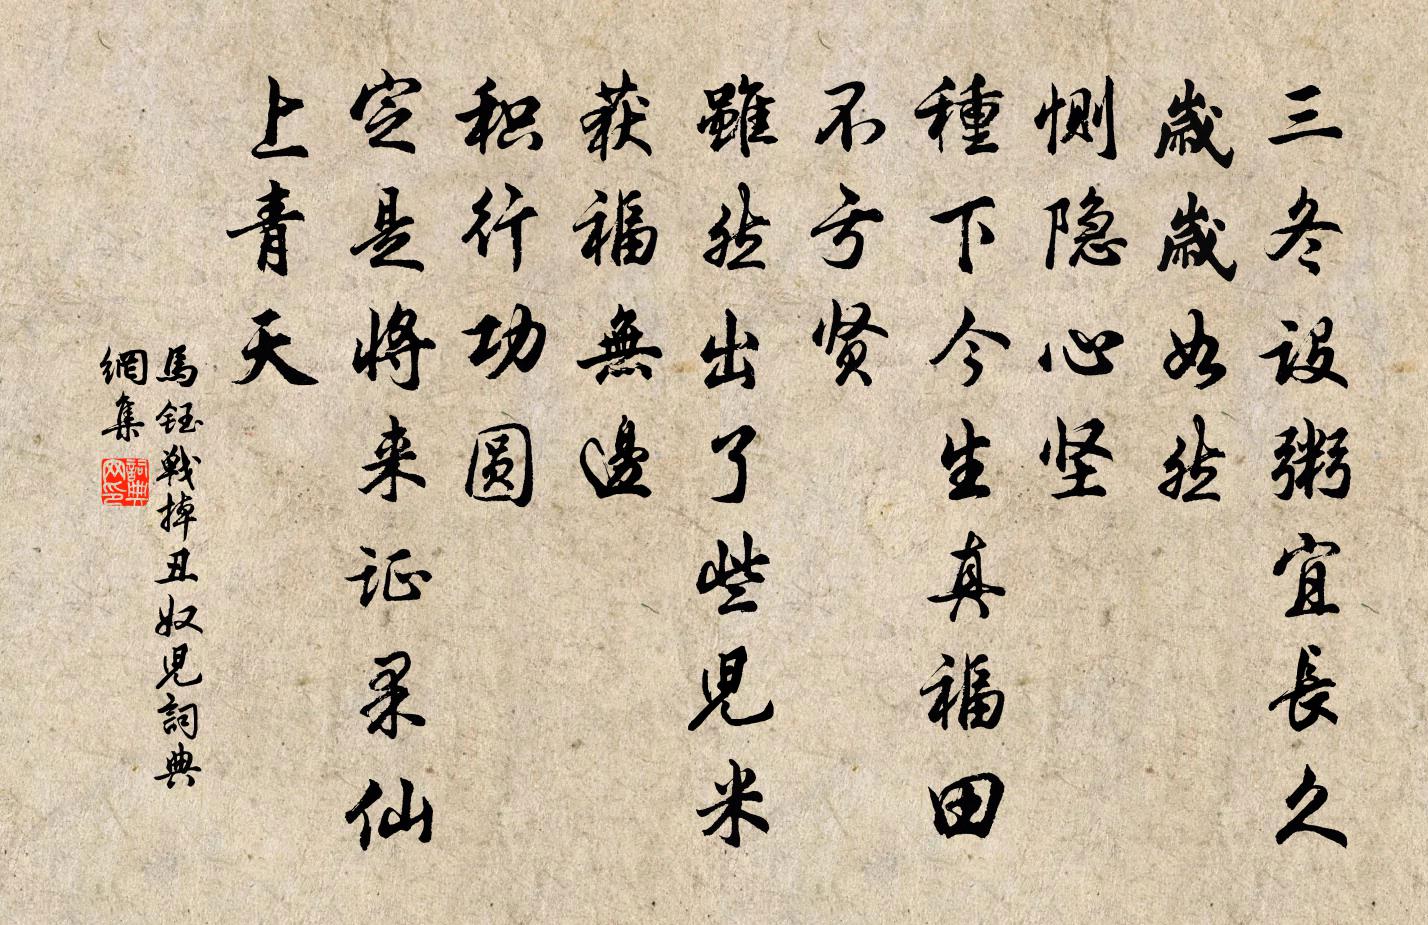 三冬设粥宜長久
歲歲如然
恻隐心坚
種下今生真福田
不亏贤
雖然出了些兒米
获福無邊
积行功圆
定是将来证果仙
上青天
馬鈺戰掉丑奴兒詞典
網集
詞典網印